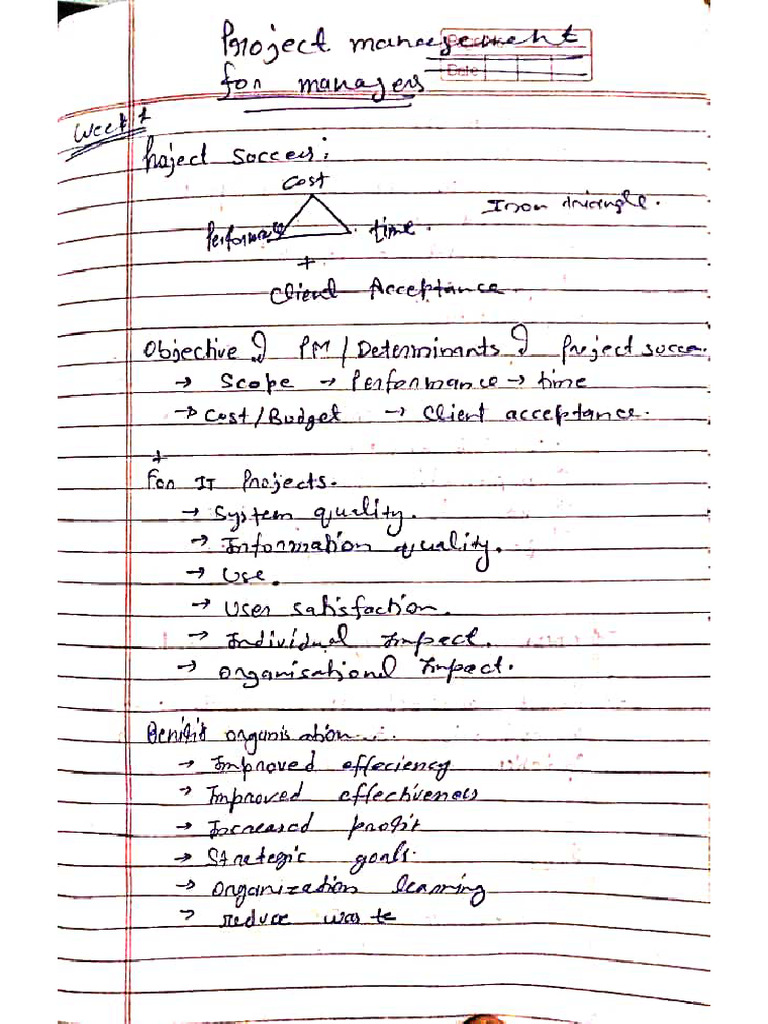 Project management
for managers
Date
Week 1
Project Success:
Cost
Iron triangle.
Performance time.
+
Client Acceptance.
Objective of PM / Determinants of Project succe.
→ Scope → Performance → time
→ Cost/Budget → Client acceptance.
+
For IT Projects.
→ System quality.
→ Information quality.
→ Use.
→ User satisfaction.
→ Individual Impact.
→ Organisational Impact.
Benifit organisation..:
→ Improved effeciency
→ Improved effectiveness
→ Increased profit
→ Strategic goals.
→ Organization learning
→ reduce waste